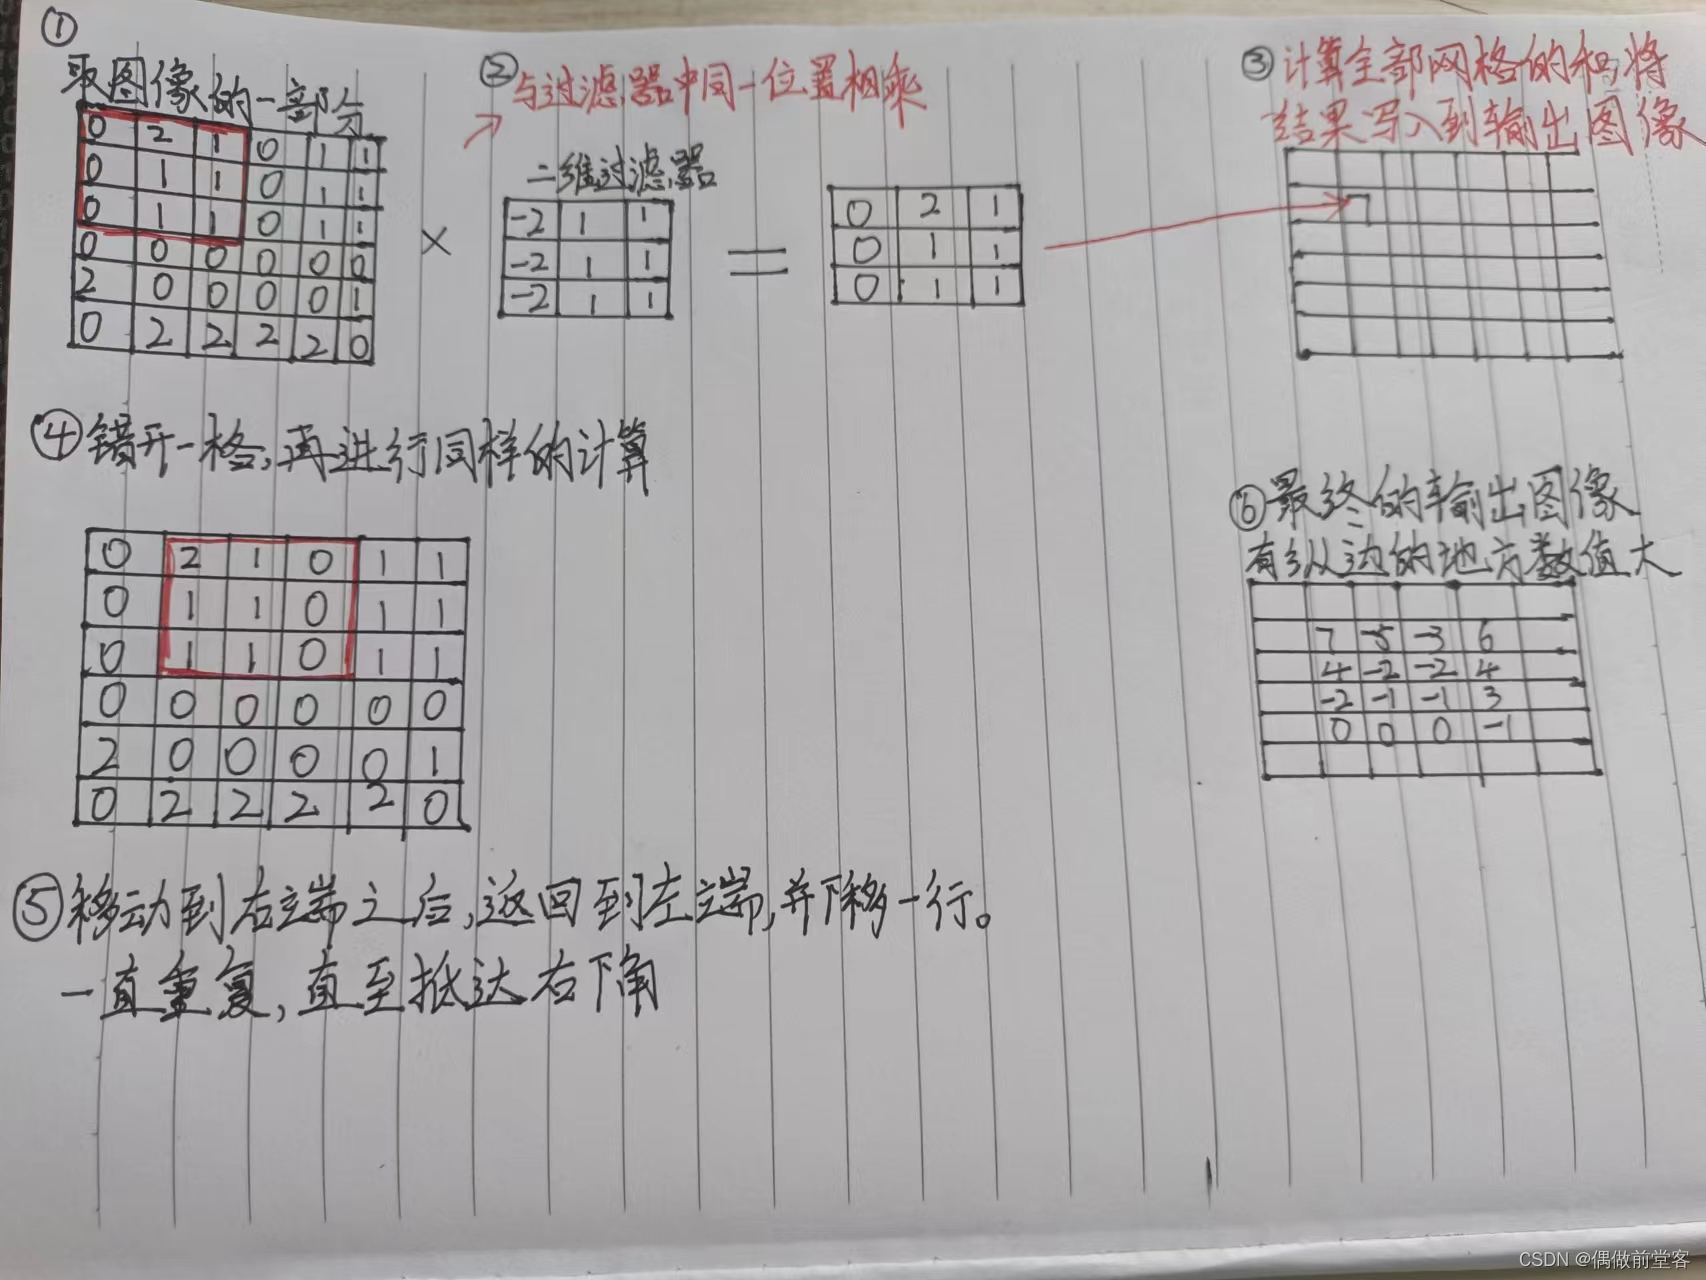 ①
取图像的一部分
0 2 1 0 1 1
0 1 1 0 1 1
0 1 1 0 1 1
0 0 0 0 0 0
2 0 0 0 0 1
0 2 2 2 2 0
②与过滤器中同一位置相乘
二维过滤器
×
-2 1 1
-2 1 1
-2 1 1
=
0 2 1
0 1 1
0 1 1
③计算全部网格的和,将
结果写入到输出图像
④错开一格,再进行同样的计算
0 2 1 0 1 1
0 1 1 0 1 1
0 1 1 0 1 1
0 0 0 0 0 0
2 0 0 0 0 1
0 2 2 2 2 0
⑤移动到右端之后,返回到左端,并下移一行。
一直重复,直至抵达右下角
⑥最终的输出图像
有纵边的地方数值大
7 -5 -3 6
4 -2 -2 4
-2 -1 -1 3
0 0 0 -1
CSDN @偶做前堂客